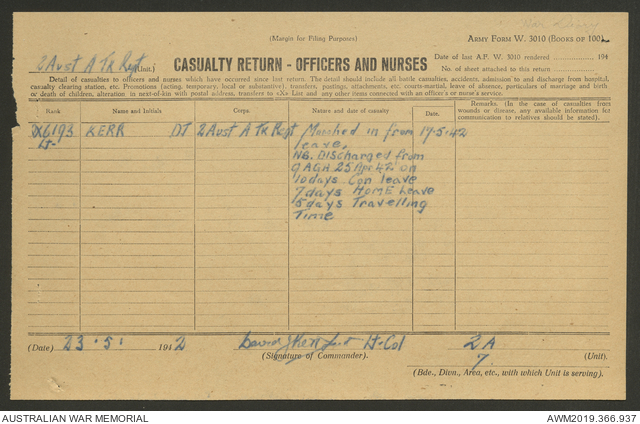 (Margin for Filing Purposes)
ARMY FORM W. 3010 (BOOKS OF 100)
2 Aust A Tk Regt (Unit.) CASUALTY RETURN - OFFICERS AND NURSES
Date of last A.F. W. 3010 rendered 194
No. of sheet attached to this return
Detail of casualties to officers and nurses which have occurred since last return. The detail should include all battle casualties, accidents, admission to and discharge from hospital,
casualty clearing station, etc. Promotions (acting, temporary, local or substantive), transfers, postings, attachments, etc. courts-martial, leave of absence, particulars of marriage and birth
or death of children, alteration in next-of-kin with postal address, transfers to «X» List and any other items connected with an officer's or nurse's service.
Rank Name and Initials Corps. Nature and date of casualty Date. Remarks. (In the case of casualties from
wounds or disease, any available information for
communication to relatives should be stated).
6193 KERR DT 2 Aust A Tk Regt Marched in from 17-5-42
Lt- leave.
NB. Discharged from
9 AGH 25 Apr 42 on
10 days Con leave
7 days HOME Leave
5 days Travelling
Time
(Date) 23 . 5 . 1942 Lt-Col 2A (Unit).
(Signature of Commander). 7.
(Bde., Divn., Area, etc., with which Unit is serving).
AUSTRALIAN WAR MEMORIAL AWM2019.366.937